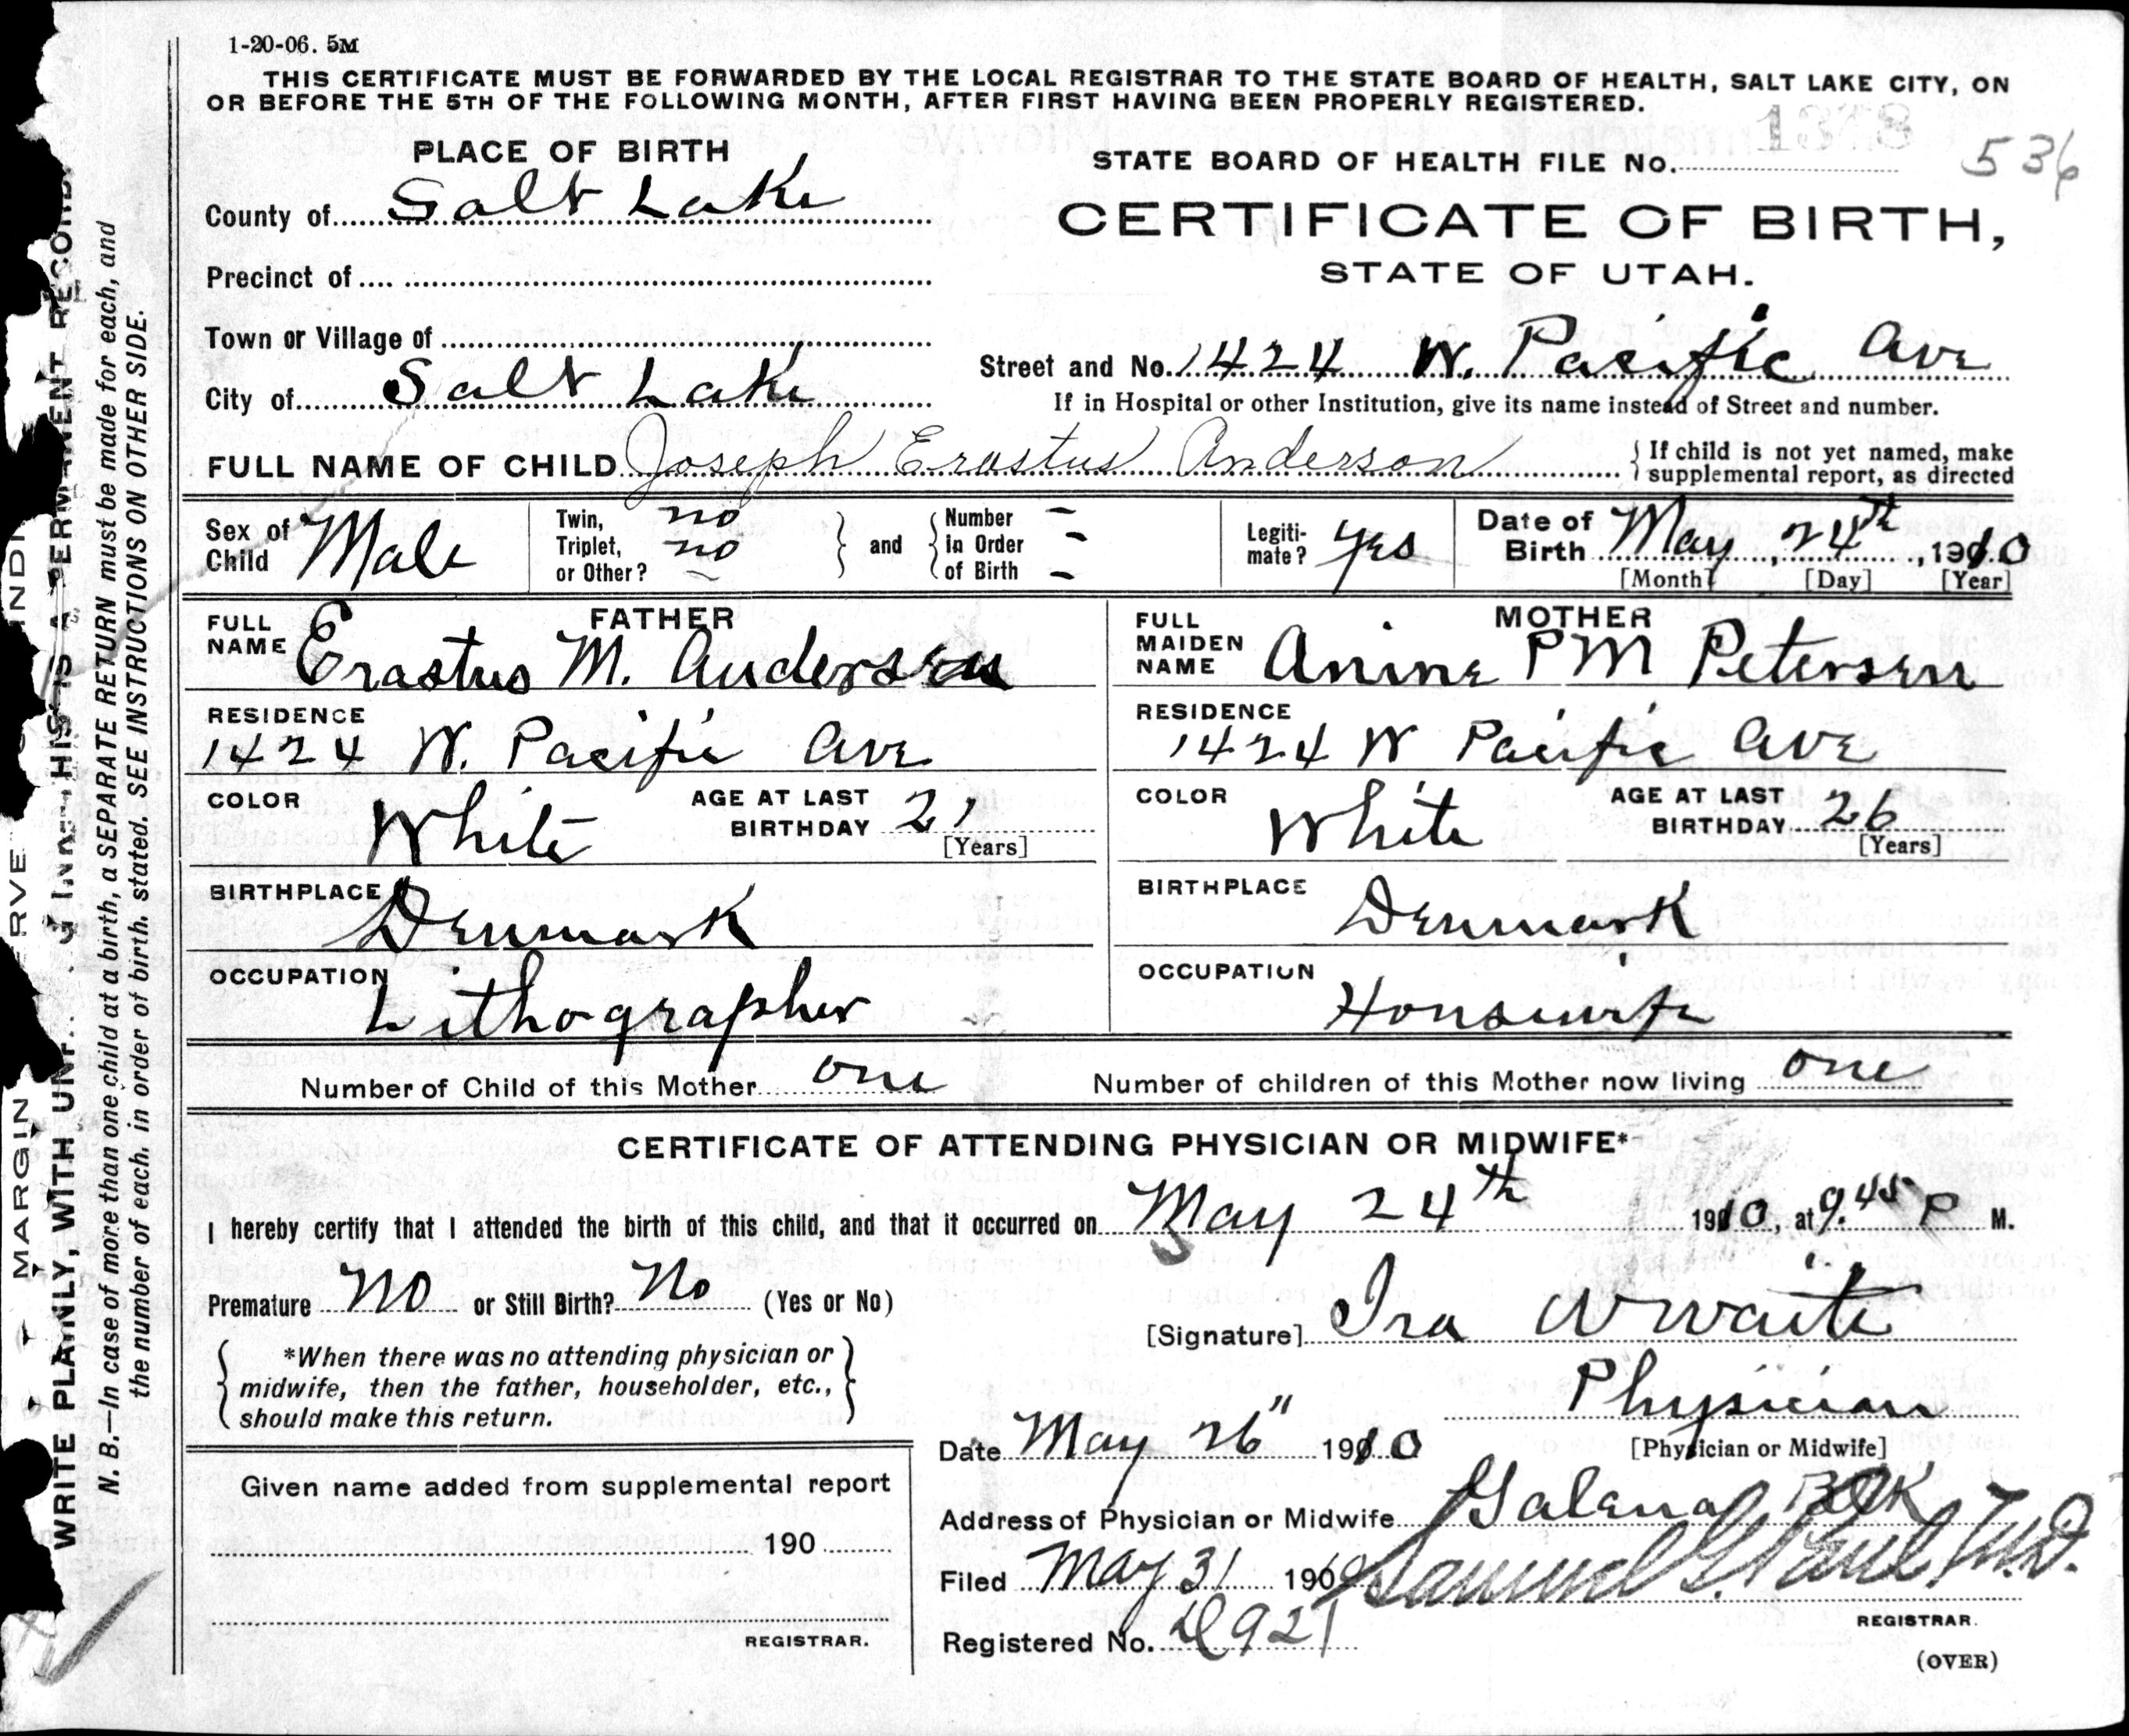 1-20-06. 5M
THIS CERTIFICATE MUST BE FORWARDED BY THE LOCAL REGISTRAR TO THE STATE BOARD OF HEALTH, SALT LAKE CITY, ON
OR BEFORE THE 5TH OF THE FOLLOWING MONTH, AFTER FIRST HAVING BEEN PROPERLY REGISTERED.
1378
536
PLACE OF BIRTH
STATE BOARD OF HEALTH FILE No.
County of Salt Lake
CERTIFICATE OF BIRTH,
STATE OF UTAH.
Precinct of
Town or Village of
Street and No. 1424 W. Pacific Ave
City of Salt Lake
If in Hospital or other Institution, give its name instead of Street and number.
FULL NAME OF CHILD Joseph Erastus Anderson
If child is not yet named, make
supplemental report, as directed
Sex of Child Male
Twin, no
Triplet, no
or Other? –
and
Number –
in Order -
of Birth -
Legiti-
mate? yes
Date of
Birth May, 24th, 1910
[Month] [Day] [Year]
FATHER
FULL
NAME Erastus M. Andersen
RESIDENCE
1424 W. Pacific Ave
COLOR White
AGE AT LAST
BIRTHDAY 21
[Years]
BIRTHPLACE Denmark
OCCUPATION Lithographer
MOTHER
FULL
MAIDEN
NAME Anine P M Petersen
RESIDENCE
1424 W Pacific Ave
COLOR White
AGE AT LAST
BIRTHDAY 26
[Years]
BIRTHPLACE Denmark
OCCUPATION
Housewife
Number of Child of this Mother one
Number of children of this Mother now living one
CERTIFICATE OF ATTENDING PHYSICIAN OR MIDWIFE*
I hereby certify that I attended the birth of this child, and that it occurred on May 24th 1910, at 9.45 P M.
Premature No or Still Birth? No (Yes or No)
[Signature] Ira W Waite
*When there was no attending physician or
midwife, then the father, householder, etc.,
should make this return.
Physician
[Physician or Midwife]
Date May 26" 1910
Address of Physician or Midwife Galena Blk
Filed May 31 190
Samuel G. Paul, M.D.
REGISTRAR.
Registered No. 921
(OVER)
Given name added from supplemental report
190
REGISTRAR.
MARGIN
WRITE PLAINLY, WITH THIS IS A PERMANENT RECORD.
N. B.—In case of more than one child at a birth, a SEPARATE RETURN must be made for each, and
the number of each, in order of birth, stated. SEE INSTRUCTIONS ON OTHER SIDE.